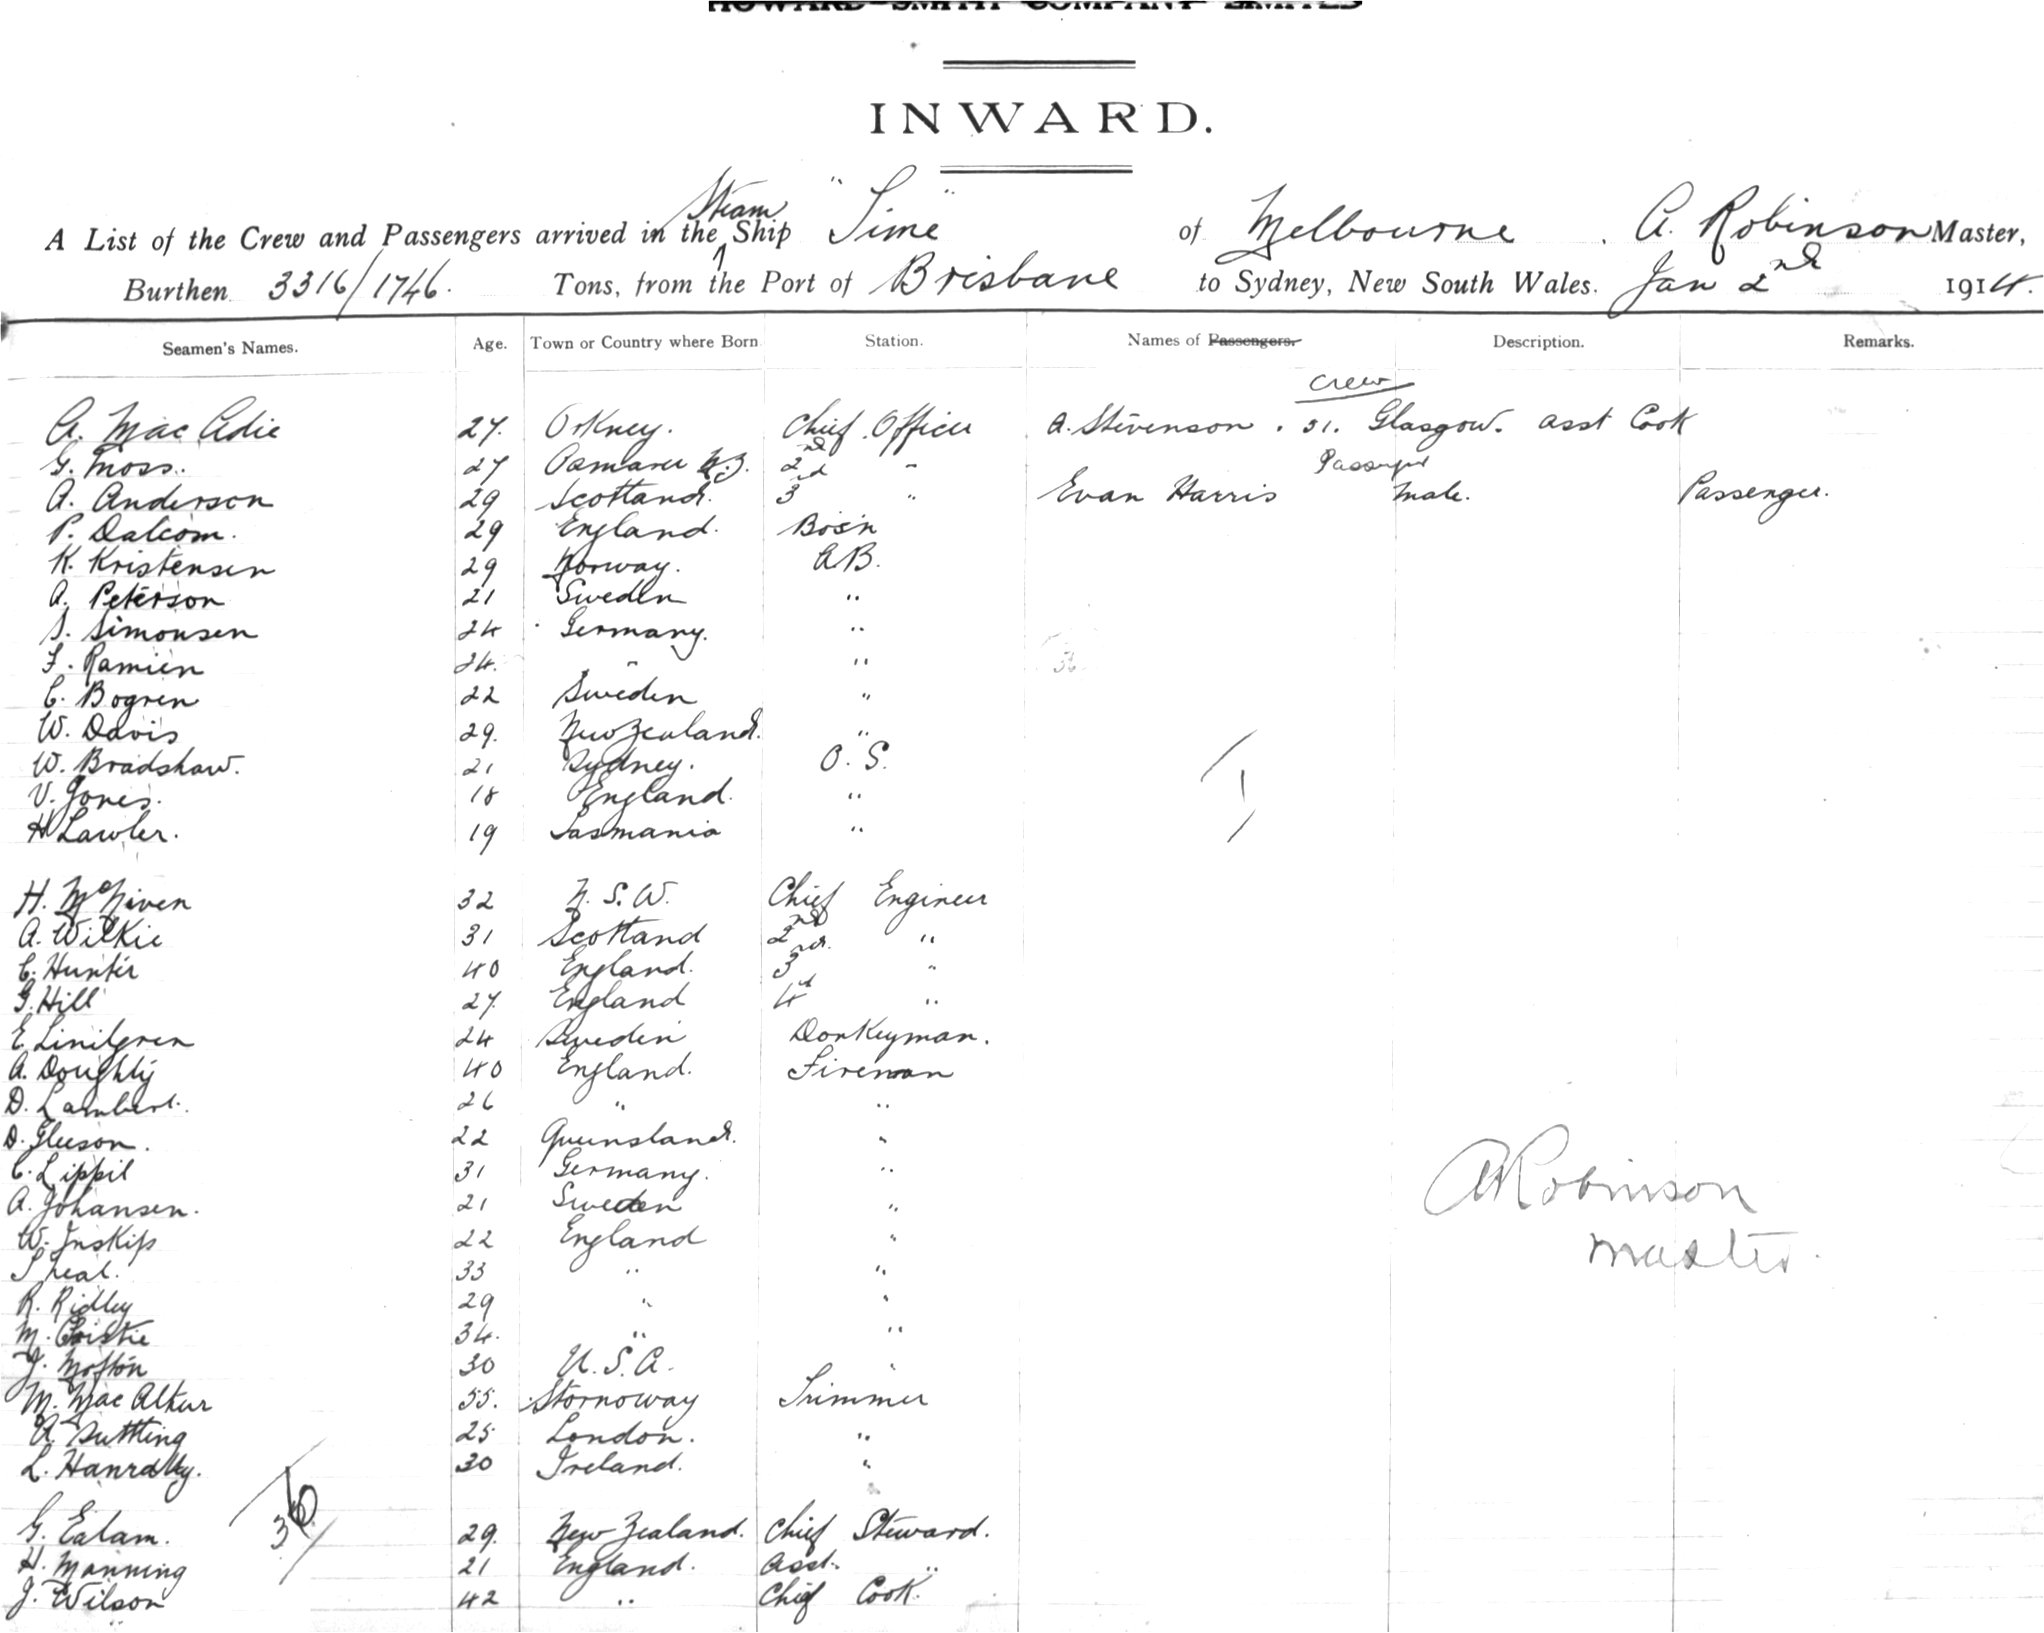 HOWARD SMITH COMPANY LIMITED
INWARD.
A List of the Crew and Passengers arrived in the Steam Ship "Time" of Melbourne. A. Robinson Master,
Burthen 3316/1746. Tons, from the Port of Brisbane to Sydney, New South Wales. Jan 2nd 1914.
Seamen's Names. Age. Town or Country where Born Station. Names of Passengers. Description. Remarks.
Crew
A. Mac Adie 27. Orkney. Chief Officer A. Stevenson. 31. Glasgow. Asst Cook
G. Moss. 27 Oamaru N.Z. 2nd " Passenger
A. Anderson 29 Scotland. 3rd " Evan Harris Male. Passenger.
P. Dalcom. 29 England. Bos'n
K. Kristensen 29 Norway. A.B.
A. Peterson 21 Sweden "
S. Simonsen 24 Germany. "
F. Ramien 24. " "
C. Bogren 22 Sweden "
W. Davis 29. New Zealand. "
W. Bradshaw. 21 Sydney. O.S.
V. Jones. 18 England. "
H Lawler. 19 Tasmania "
1
H. McNiven 32 N.S.W. Chief Engineer
A. Wilkie 31 Scotland 2nd "
C. Hunter 40 England. 3rd "
G. Hill 27. England 4th "
E. Lindgren 24 Sweden Donkeyman.
A. Doughty 40 England. Fireman
D. Lambert. 26 " "
D. Gleeson. 22 Queensland. "
C. Lippil 31 Germany. "
A. Johansen. 21 Sweden "
W. Inskip 22 England "
33 " "
R. Ridley 29 " "
M. Cristie 34. " "
J. 30 U.S.A. "
M. Mac Arthur 55. Stornoway Trimmer
A. Suttling 25 London. "
L. 30 Ireland. "
36
G. Ealam. 29. New Zealand. Chief Steward.
H. Manning 21 England. Asst. "
J. Wilson 42 " Chief Cook.
A Robinson
Master.